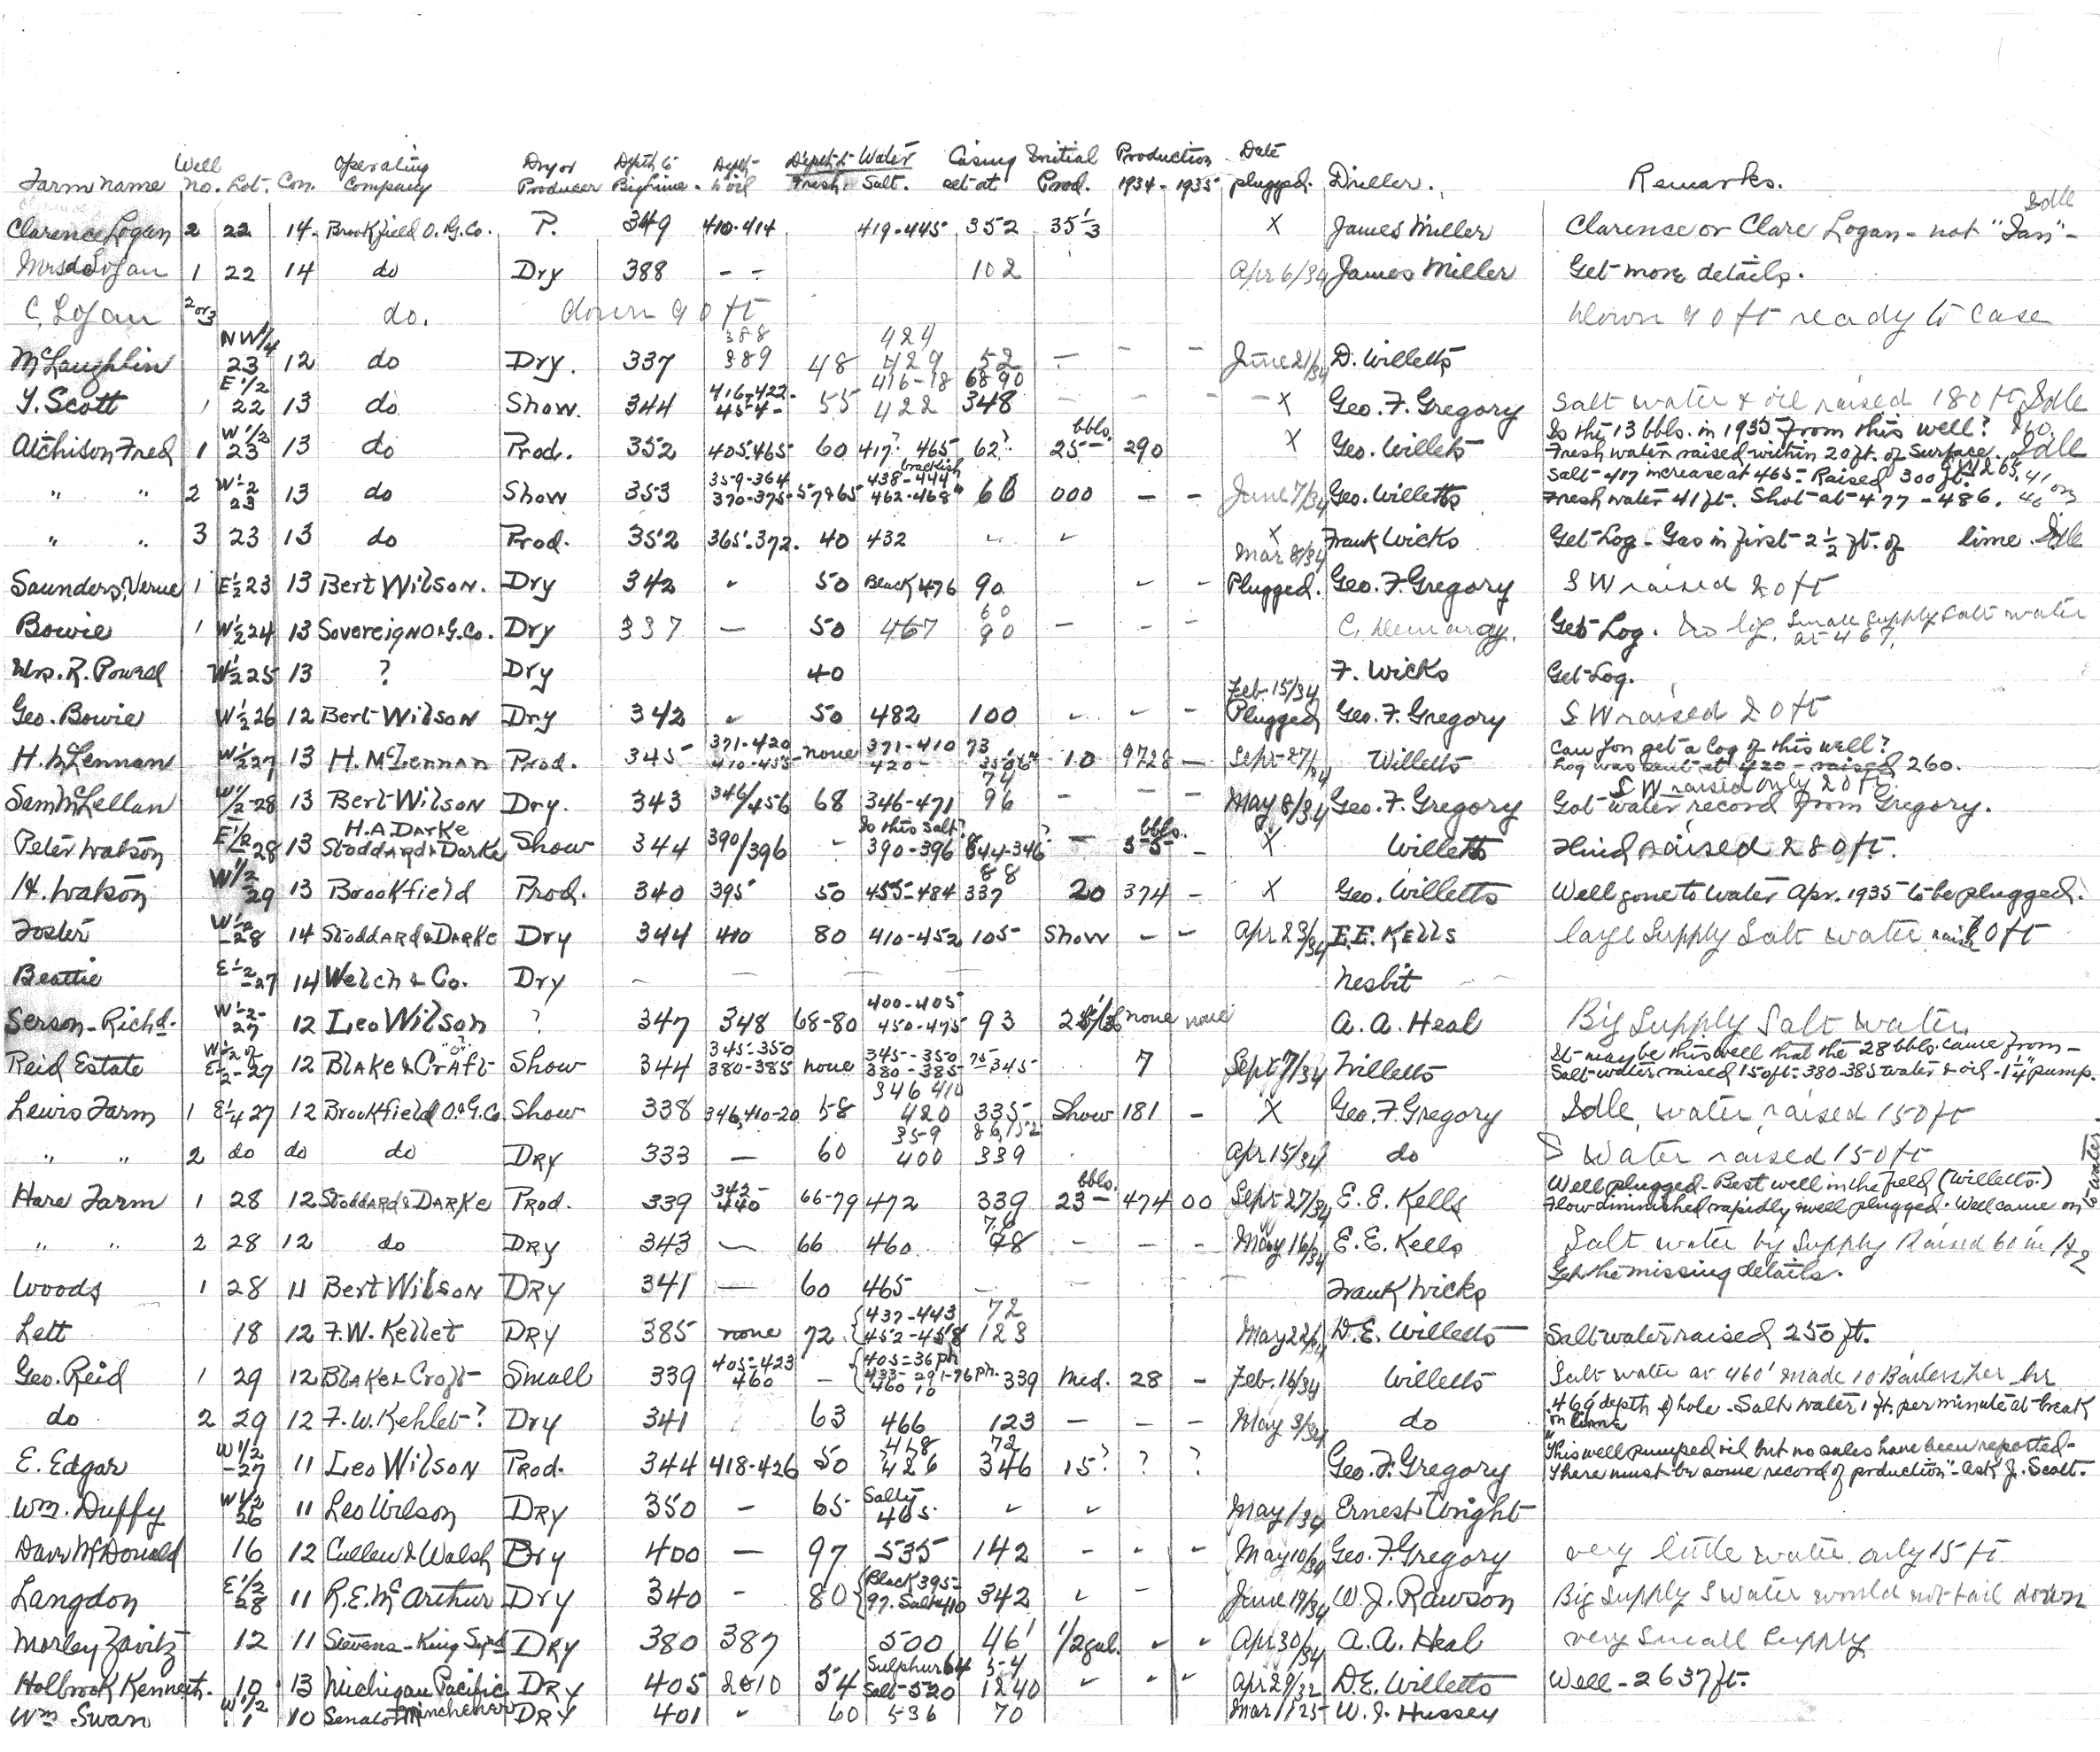 Farm name Well no. Lot. Con. Operating Company Dry or Producer Depth to Big Lime. Depth oil Depth to Water Fresh Salt. Casing set at Initial Prod. Production 1934 - 1935 Date plugged. Driller. Remarks.
Clarence Logan 2 22 14 Brookfield O. G. Co. P. 349 410-414 419-445 352 35 1/3 X James Miller Clarence or Clare Logan - not "Ian" - Idle
Mrs Logan 1 22 14 do Dry 388 - - 102 Apr 6/34 James Miller Get more details.
C. Logan 2 or 3 do. down 90 ft Down 90 ft ready to case
McLaughlin NW 1/4 23 12 do Dry. 337 388 389 48 424 429 52 - - - June 21/34 D. Willetts
Y. Scott 1 E 1/2 22 13 do Show. 344 416-422 454- 55 416-18 422 68 90 348 - - - X Geo. F. Gregory Salt water & oil raised 180 ft Idle
Atchison Fred 1 W 1/2 23 13 do Prod. 352 405-465 60 417? 465 62? 25 bbls. 290 X Geo. Willetts Is the 13 bbls. in 1935 from this well? Fresh water raised within 20 ft. of Surface. Idle
" " 2 W 1/2 23 13 do Show 353 359-364 370-375 57&65 brackish 438-444 462-468 66 000 - - June 7/34 Geo. Willetts Salt-417 increase at 465- Raised 300 ft. Fresh water 41 ft. Shot at 477-486.
" " 3 23 13 do Prod. 352 365-372. 40 432 X Frank Wicks Get Log - Gas in first 2 1/2 ft. of lime. Idle
Saunders, Verne 1 E 1/2 23 13 Bert Wilson. Dry 342 50 Black 476 90 - - Mar 8/34 Plugged. Geo. F. Gregory S W raised 20 ft
Bowie 1 W 1/2 24 13 Sovereign O & G. Co. Dry 337 - 50 467 60 90 - - - C. Get Log. No log. Small supply salt water at 467.
Mrs. R. Powell W 1/2 25 13 ? Dry 40 F. Wicks Get Log.
Geo. Bowie W 1/2 26 12 Bert Wilson Dry 342 50 482 100 - - Feb. 15/34 Plugged Geo. F. Gregory S W raised 20 ft
H. McLennan W 1/2 27 13 H. McLennan Prod. 345 371-420 410-455 none 371-410 420- 73 10 9728 - Sept 27/34 Willetts Can you get a log of this well? Log was sent at 420 - raised 260.
Sam McLellan W 1/2 28 13 Bert Wilson Dry. 343 346/456 68 346-471 74 96 - - - May 8/34 Geo. F. Gregory S W raised only 20 ft. Got water record from Gregory.
Peter Watson E 1/2 28 13 H. A Darke Stoddard & Darke Show 344 390/396 - Is this Salt? 390-396 344-346? - 55 bbls. - X Willetts Fluid raised 280 ft.
H. Watson W 1/2 29 13 Brookfield Prod. 340 395 50 455-484 88 337 20 374 - X Geo. Willetts Well gone to water Apr. 1935 to be plugged.
Foster W 1/2 28 14 Stoddard & Darke Dry 344 410 80 410-452 105 Show - - Apr 23/34 E.E. Kells large supply Salt water
Beattie E 1/2 27 14 Welch & Co. Dry - Nesbit
Serson - Richd. W 1/2 27 12 Leo Wilson ? 347 348 68-80 400-405 450-475 93 none none A. A. Heal Big Supply Salt water
Reid Estate W 1/2 of E 1/2 - 27 12 Blake & Croft Show 344 345-350 380-385 none 345-350 380-385 75-345 7 Sept 7/34 Willetts It may be this well that the 28 bbls. came from - Salt water raised 150 ft. 380-385 water & oil - 1 1/4" pump.
Lewis Farm 1 E 1/4 27 12 Brookfield O. & G. Co Show 338 346, 410-20 58 346 410 420 335 Show 181 - X Geo. F. Gregory Idle water raised 150 ft
" " 2 do do do Dry 333 - 60 359 400 86, 152 339 Apr 15/34 do S Water raised 150 ft
Hare Farm 1 28 12 Stoddard & Darke Prod. 339 342-440 66-79 472 339 23 bbls. 474 00 Sept 27/34 E. E. Kells Well plugged - Best well in the field (Willetts.) Flow diminished rapidly & well plugged. Well came on to water.
" " 2 28 12 do Dry 343 - 66 460 76 98 - - - May 16/34 E. E. Kells Salt water big Supply Raised 60 in 1/2
Woods 1 28 11 Bert Wilson Dry 341 - 60 465 - Frank Wicks Get the missing details.
Lett 18 12 F. W. Kellet Dry 385 none 72 437-443 452-458 72 123 May 22/34 D. E. Willetts Salt water raised 250 ft.
Geo. Reid 1 29 12 Blake & Croft Small 339 405-423 460 - 405=36 ph 433-29 1-96 ph. 460 10 339 Med. 28 - Feb. 16/34 Willetts Salt water at 460' made 10 Bailers per hr
do 2 29 12 F. W. Kehlet? Dry 341 63 466 123 - - - May 3/34 do 469 depth of hole - Salt water 1 ft. per minute at break in lime
E. Edgar W 1/2 - 27 11 Leo Wilson Prod. 344 418-426 50 418 426 72 346 15? ? ? Geo. F. Gregory "This well pumped oil but no sales have been reported - There must be some record of production" - ask J. Scott.
Wm. Duffy W 1/2 26 11 Leo Wilson Dry 350 - 65 Salty 465 May 1/34 Ernest Wright
Dave McDonald 16 12 Cullen & Walsh Dry 400 - 97 535 142 - - - May 10/34 Geo. F. Gregory very little water only 15 ft
Langdon E 1/2 28 11 R. E. McArthur Dry 340 - 80 Black 395-97. Salty 410 342 - June 19/34 W. J. Rawson Big supply S water would not bail down
Morley Zavitz 12 11 Stevens - King Synd Dry 380 387 500 46' 1/2 gal. Apr 30/34 A. A. Heal very small supply
Holbrook Kenneth. 10 13 Michigan Pacific Dry 405 2610 54 Sulphur 64 Salt - 520 54 1240 Apr 29/32 D. E. Willetts Well - 2637 ft.
Wm Swan W 1/2 1 10 Senator Dry 401 60 536 70 Mar 1/25 W. J. Hussey